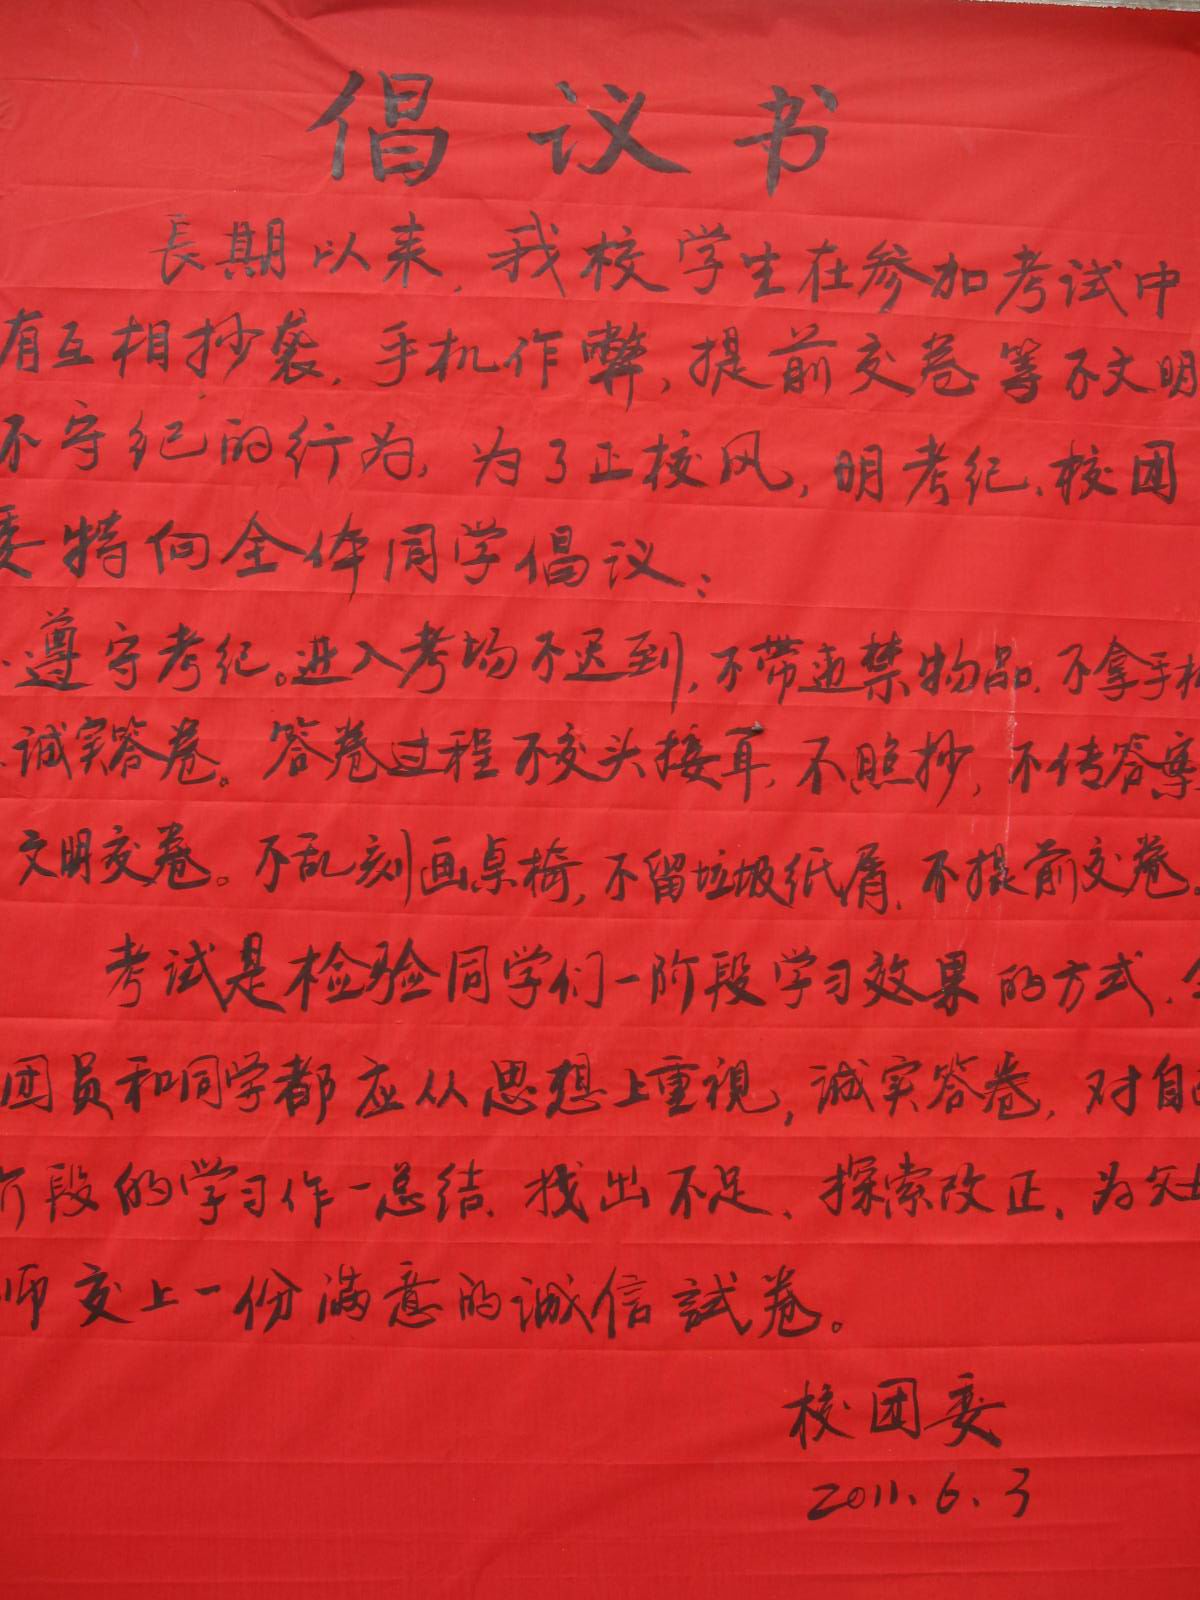 倡议书
長期以来，我校学生在参加考试中
有互相抄袭，手机作弊，提前交卷等不文明
不守纪的行为，为了正校风，明考纪、校团
委特向全体同学倡议：
遵守考纪。进入考场不迟到，不带违禁物品、不拿手机
诚实答卷。答卷过程不交头接耳，不照抄，不传答案
文明交卷。不乱刻画桌椅，不留垃圾纸屑、不提前交卷。
考试是检验同学们一阶段学习效果的方式、全
团员和同学都应从思想上重視，诚实答卷，对自己
阶段的学习作一总结、找出不足、探索改正、为父母
师交上一份满意的诚信試卷。
校团委
2011.6.3